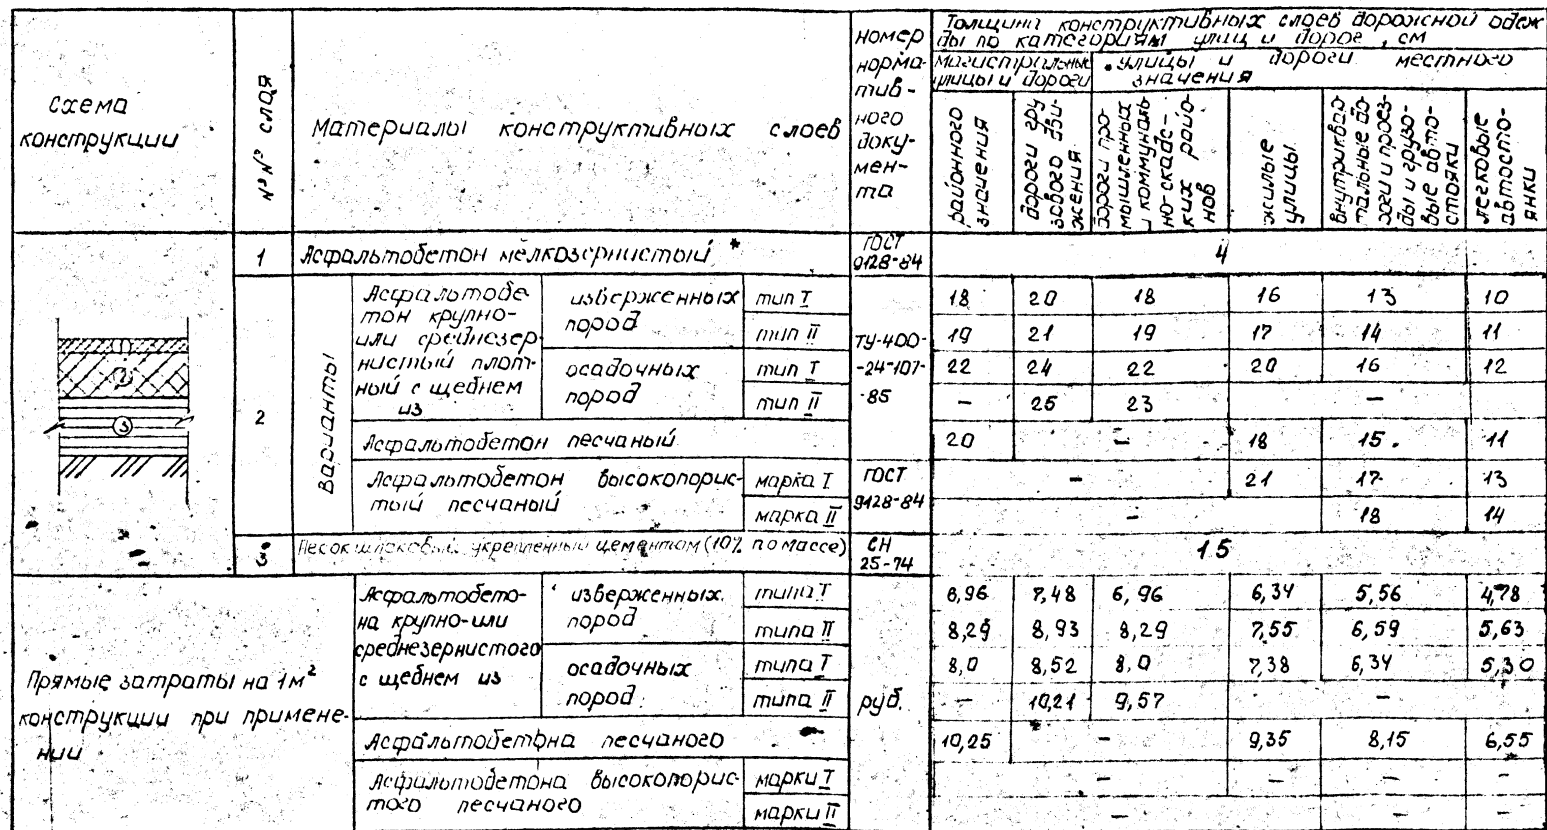 Схема
конструкции
№№ слоя
Материалы конструктивных слоев
номер
норма-
тив-
ного
доку-
мен-
та
Толщина конструктивных слоев дорожной одеж
ды по категориям улиц и дорог, см
магистральные
улицы и дороги
улицы и дороги местного
значения
районного
значения
дороги гру
зового дви-
жения
дороги про
мышленных
и коммуналь
но-складс-
ких райо-
нов
жилые
улицы
внутриквар
тальные до
роги и проез-
ды и грузо-
вые авто-
стоянки
легковые
автосто-
янки
1 Асфальтобетон мелкозернистый * ГОСТ
9128-84 4
2
Варианты
Асфальтобе
тон крупно-
или среднезер-
нистый плот-
ный с щебнем
из
изверженных
пород
тип I 18 20 18 16 13 10
тип II 19 21 19 17 14 11
осадочных
пород
тип I 22 24 22 20 16 12
тип II – 25 23 –
ТУ-400-
-24-107-
-85
Асфальтобетон песчаный 20 – 18 15 11
Асфальтобетон высокопорис-
тый песчаный
марка I – 21 17 13
марка II – 18 14
ГОСТ
9128-84
3 Песок шлаковый укрепленный цементом (10% по массе) СН
25-74 15
① ② ③
Прямые затраты на 1м²
конструкции при примене-
нии
Асфальтобето-
на крупно-или
среднезернистого
с щебнем из
изверженных
пород
типа I 6,96 7,48 6,96 6,34 5,56 4,78
типа II 8,29 8,93 8,29 7,55 6,59 5,63
осадочных
пород
типа I 8,0 8,52 8,0 7,38 6,34 5,30
типа II – 10,21 9,57 –
руб.
Асфальтобетона песчаного 10,25 – 9,35 8,15 6,55
Асфальтобетона высокопорис-
того песчаного
марки I – – – –
марки II – – –